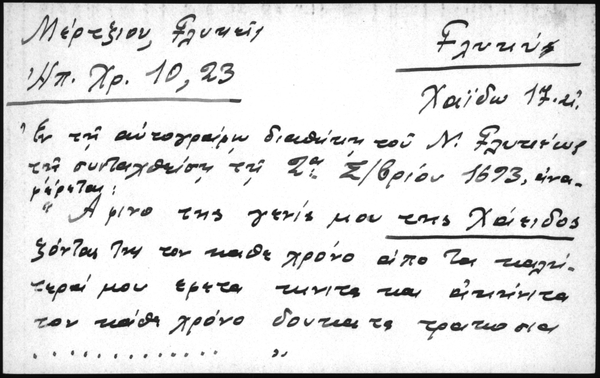 Μέρτζιου, Γλυκεῖς
Γλυκύς
Ἠπ. Χρ. 10, 23
Χαΐδω 17. αἰ.
Ἐν τῇ αὐτογράφῳ διαθήκῃ τοῦ Ν. Γλυκέως
τῇ συνταχθείσῃ τῇ 2ᾳ Σ/βρίου 1693, ἀνα-
φέρεται:
"Αφινο της γενίς μου της Χάειδος
ζόντας της τον καθε χρόνο ἀπο τα καλή-
τεραί μου ερετα κινιτα και ἀκινίντα
τον κάθε χρόνο δουκατα τρακοσια
. . . . . . . . . . . . . "